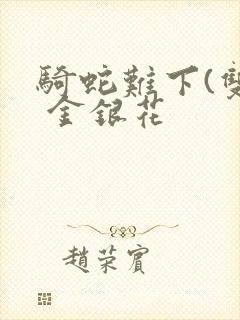 騎蛇難下(雙
金銀花
趙荣賓